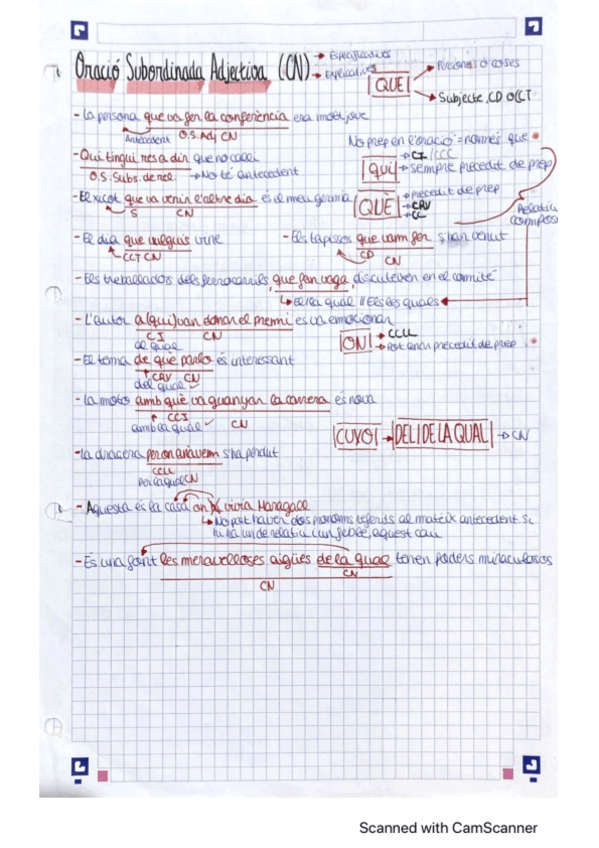 Oració Subordinada Adjectiva (CN) → Especificatives
→ Explicatives
QUE → Persones o coses
→ Subjecte, CD o CCT
- La persona que va fer la conferència era molt jove
Antecedent O.S. Adj CN
No prep en l'oració = només que
- Qui tingui res a dir que no calli
O.S. Subs. de rel. → No té antecedent
qui → CI / CCC
→ sempre precedit de prep
- El xicot que va venir l'altre dia és el meu germà
S CN
QUÈ → precedit de prep
→ CRV
→ CC
Relatiu compost
- El dia que vulguis vine
CCT CN
- Els tapissos que vam fer s'han venut
CD CN
- Els treballadors dels ferrocarrils, que fan vaga, discuteixen en el comitè
↳ El/la qual // Els/les quals
- L'autor a (qui) van donar el premi es va emocionar
CI CN
al qual
ON → CCLL
→ Pot anar precedit de prep
- El tema de què parlo és interessant
CRV CN
del qual ✓
- La moto amb què va guanyar la carrera és nova
CCI
amb la qual ✓ CN
CUYO → DEL / DE LA QUAL → CN
- la drecera per on anàvem s'ha perdut
CCLL
per la qual CN
- Aquesta és la casa on X vivia Maragall
↳ No pot haver dos pronoms referits al mateix antecedent. Si
hi ha un de relatiu i un feble, aquest cau
- És una font les meravelloses aigües de la qual tenen poders miraculosos
CN
CN
Scanned with CamScanner